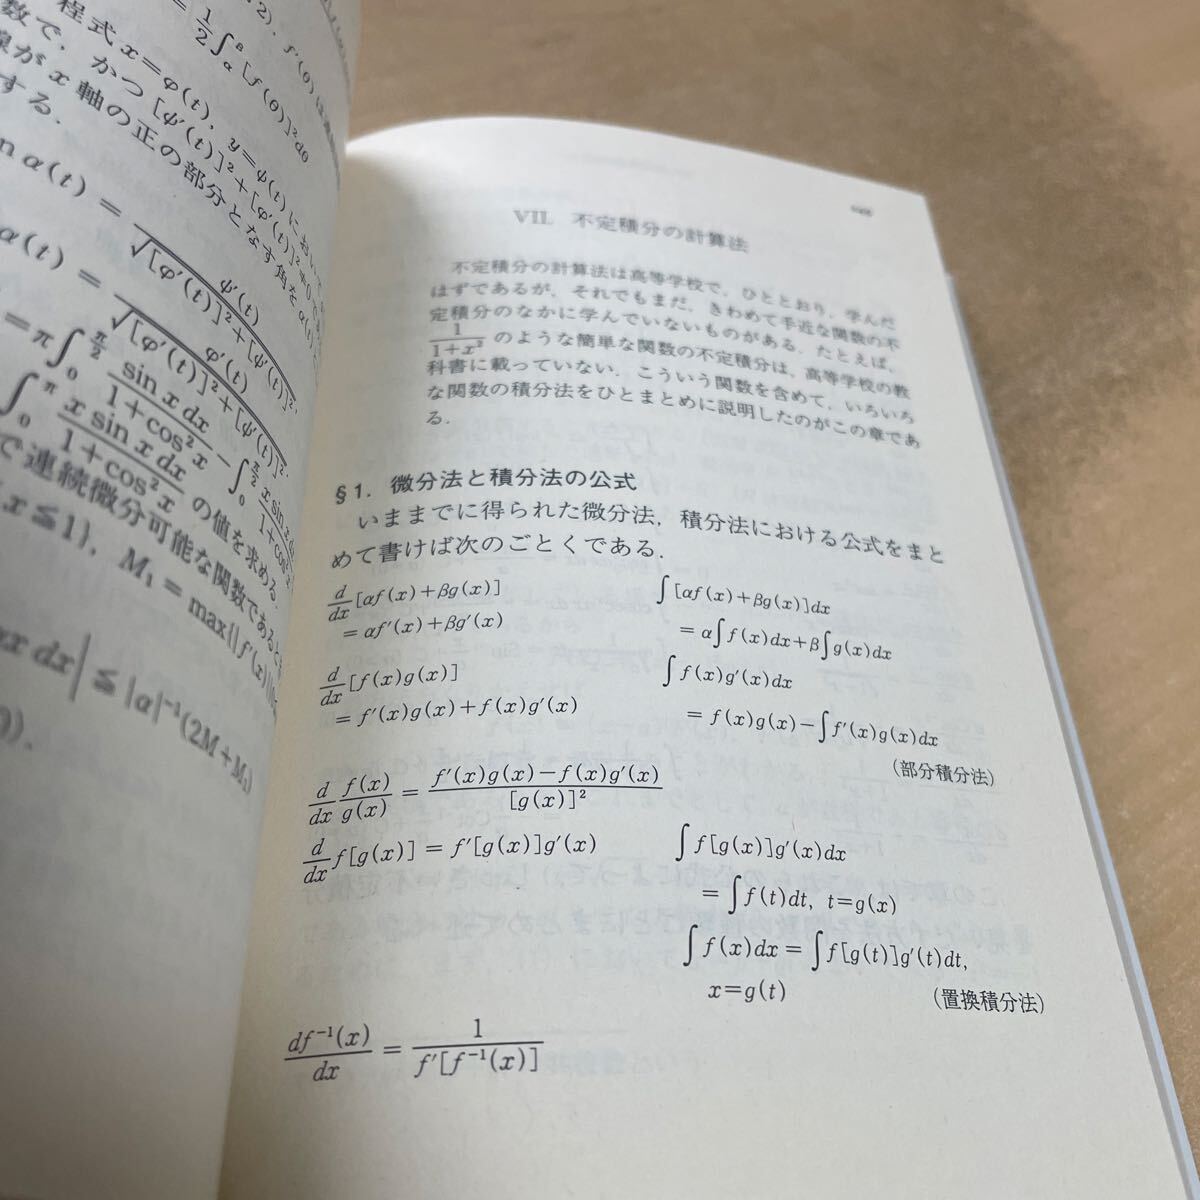 程式 x=φ(t), y=ψ(t) において
数で, かつ [ψ′(t)]²+[φ′(t)]²≠0
線が x 軸の正の部分となす角を α(t)
する.
n α(t) = ψ′(t) / √[φ′(t)]²+[ψ′(t)]²,
α(t) = φ′(t) / √[φ′(t)]²+[ψ′(t)]².
= π∫₀^{π/2} sin x dx / 1+cos² x − ∫₀^{π/2} x sin x
∫₀^π x sin x dx / 1+cos² x の値を求める.
で連続微分可能な関数であると
x≦1}, M₁=max{|f′(x)|
x dx| ≦ |α|⁻¹(2M+M₁)
VII. 不定積分の計算法
不定積分の計算法は高等学校で, ひととおり, 学んだ
はずであるが, それでもまだ, きわめて手近な関数の不
定積分のなかに学んでいないものがある. たとえば,
1/1+x² のような簡単な関数の不定積分は, 高等学校の教
科書に載っていない. こういう関数を含めて, いろいろ
な関数の積分法をひとまとめに説明したのがこの章であ
る.
§1. 微分法と積分法の公式
いままでに得られた微分法, 積分法における公式をまと
めて書けば次のごとくである.
d/dx [αf(x)+βg(x)]
= αf′(x)+βg′(x)
∫[αf(x)+βg(x)]dx
= α∫f(x)dx+β∫g(x)dx
d/dx [f(x)g(x)]
= f′(x)g(x)+f(x)g′(x)
∫f(x)g′(x)dx
= f(x)g(x)−∫f′(x)g(x)dx
(部分積分法)
d/dx f(x)/g(x) = f′(x)g(x)−f(x)g′(x) / [g(x)]²
d/dx f[g(x)] = f′[g(x)]g′(x)
∫f[g(x)]g′(x)dx
= ∫f(t)dt, t=g(x)
∫f(x)dx = ∫f[g(t)]g′(t)dt,
x=g(t)
(置換積分法)
df⁻¹(x)/dx = 1/f′[f⁻¹(x)]